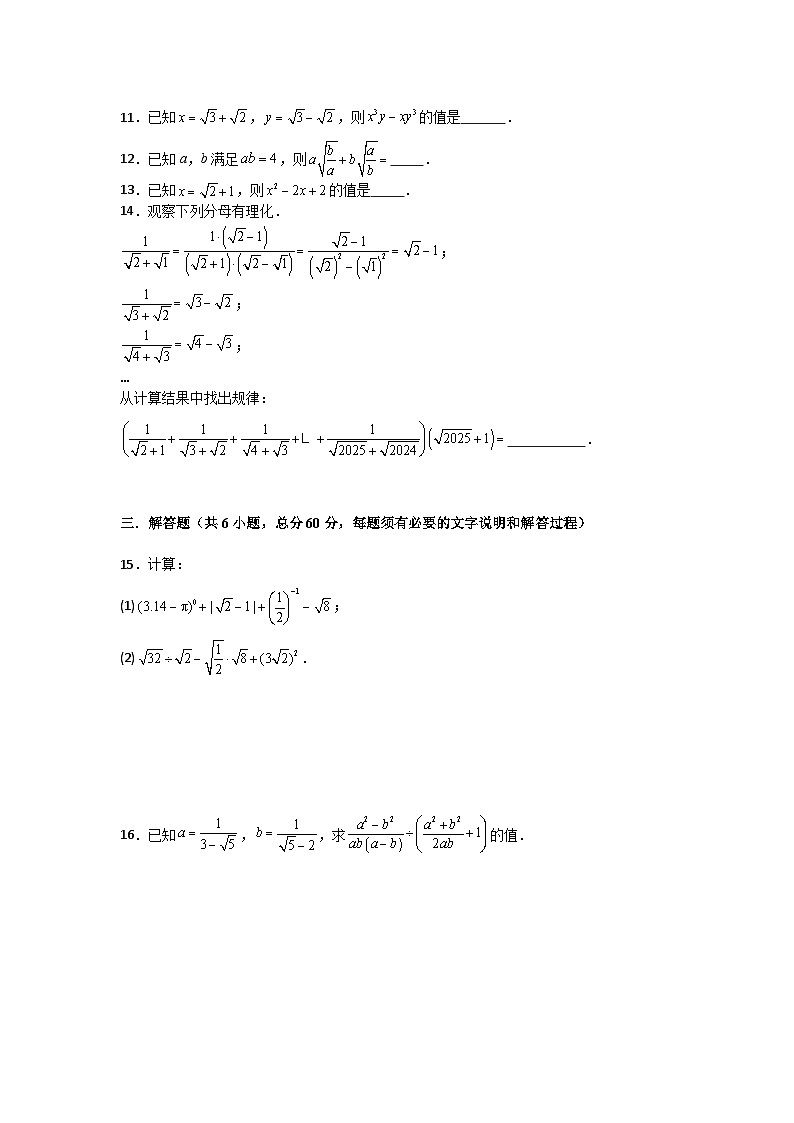 11．已知 x = √3 + √2，y = √3 − √2，则 x³y − xy³ 的值是______．
12．已知 a，b 满足 ab = 4，则 a√(b/a) + b√(a/b) = _____．
13．已知 x = √2 + 1，则 x² − 2x + 2 的值是_____．
14．观察下列分母有理化．
1/(√2 + √1) = 1·(√2 − 1)/((√2 + 1)·(√2 − √1)) = (√2 − 1)/((√2)² − (√1)²) = √2 − 1；
1/(√3 + √2) = √3 − √2；
1/(√4 + √3) = √4 − √3；
…
从计算结果中找出规律：
(1/(√2 + 1) + 1/(√3 + √2) + 1/(√4 + √3) + L + 1/(√2025 + √2024))(√2025 + 1) = ____________．
三．解答题（共 6 小题，总分 60 分，每题须有必要的文字说明和解答过程）
15．计算：
(1) (3.14 − π)⁰ + |√2 − 1| + (1/2)⁻¹ − √8；
(2) √32 ÷ √2 − √(1/2) · √8 + (3√2)²．
16．已知 a = 1/(3 − √5)，b = 1/(√5 − 2)，求 (a² − b²)/(ab(a − b)) ÷ ((a² + b²)/(2ab) + 1) 的值．